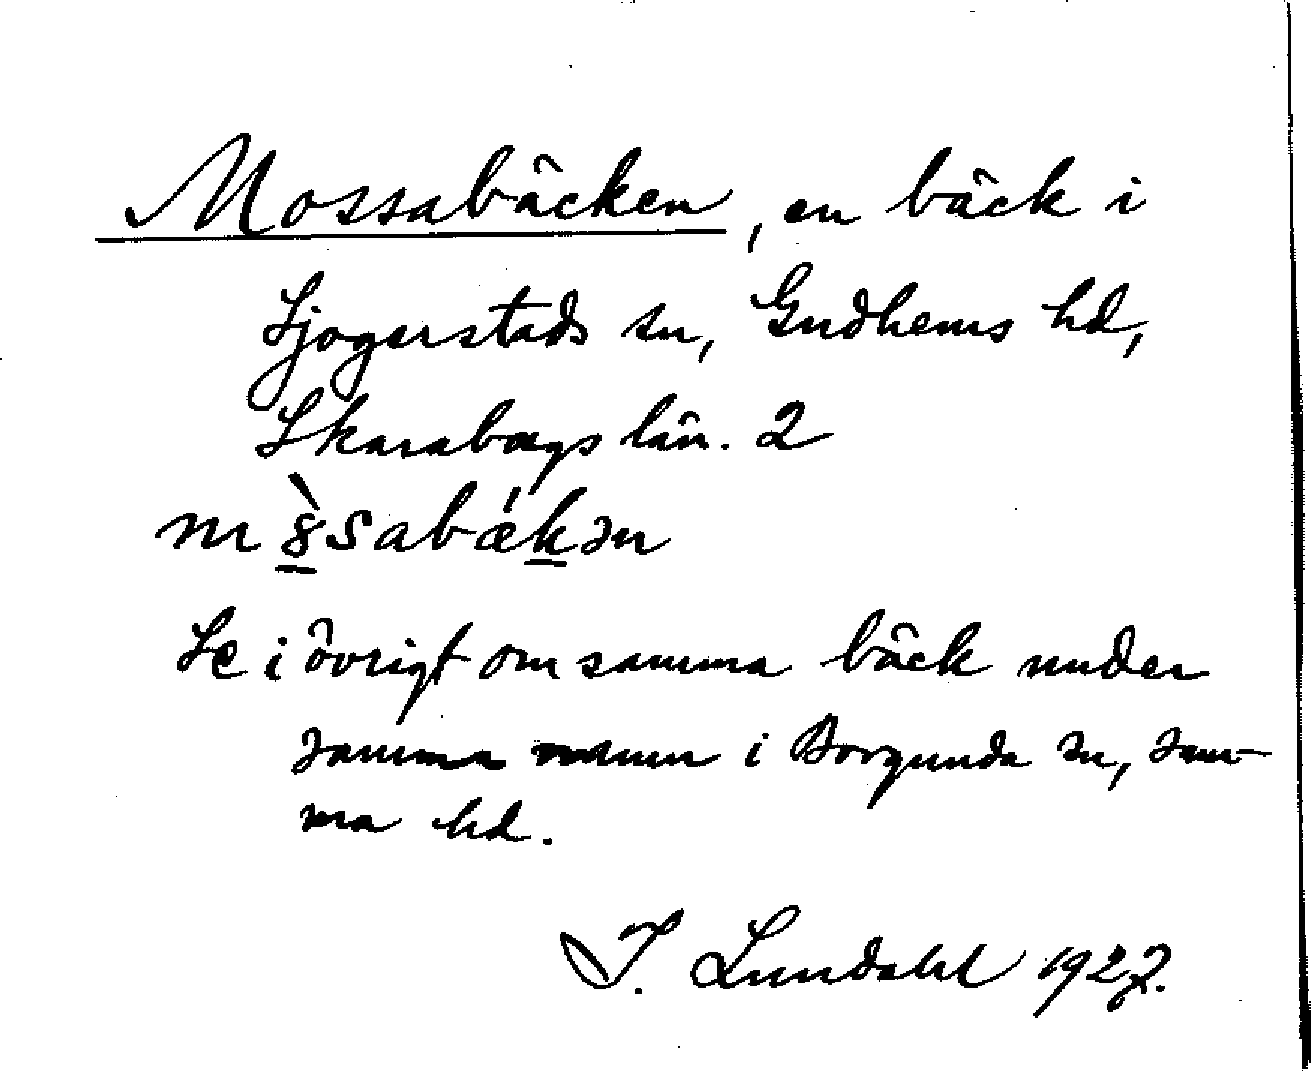 Mossabäcken, en bäck i
Sjogerstads sn, Gudhems hd,
Skarabogs län. 2
m8̀sabǽkən
Se i övrigt om samma bäck under
samma namn i Borgunda sn, sam-
ma hd.
I. Lundahl 1927.